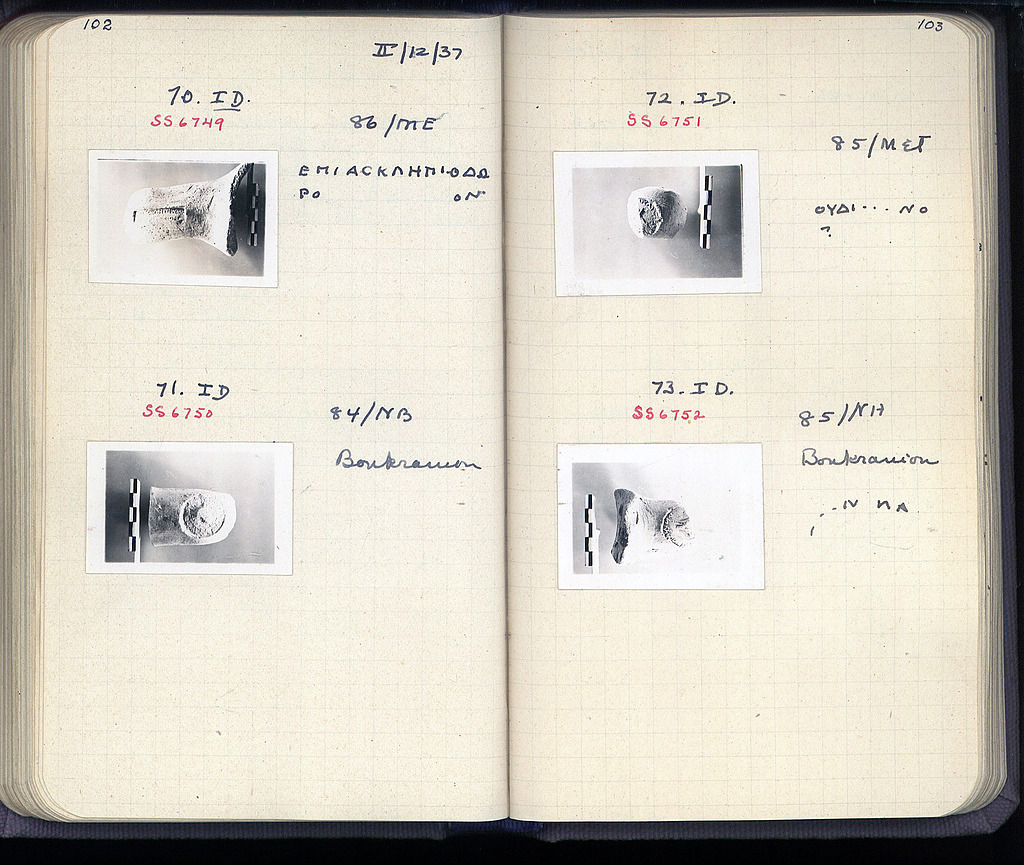 102
II/12/37
70. ID.
SS 6749
86/ME
ΕΠΙΑСΚΛΗΠΙΟΔΩ
ΡΟ ΟΝ
71. ID
SS 6750
84/NB
Boukranion
103
72. ID.
SS 6751
85/ΜΕΓ
ΟΥΔΙ··· ΝΟ
?
73. ID.
SS 6752
85/NH
Boukranion